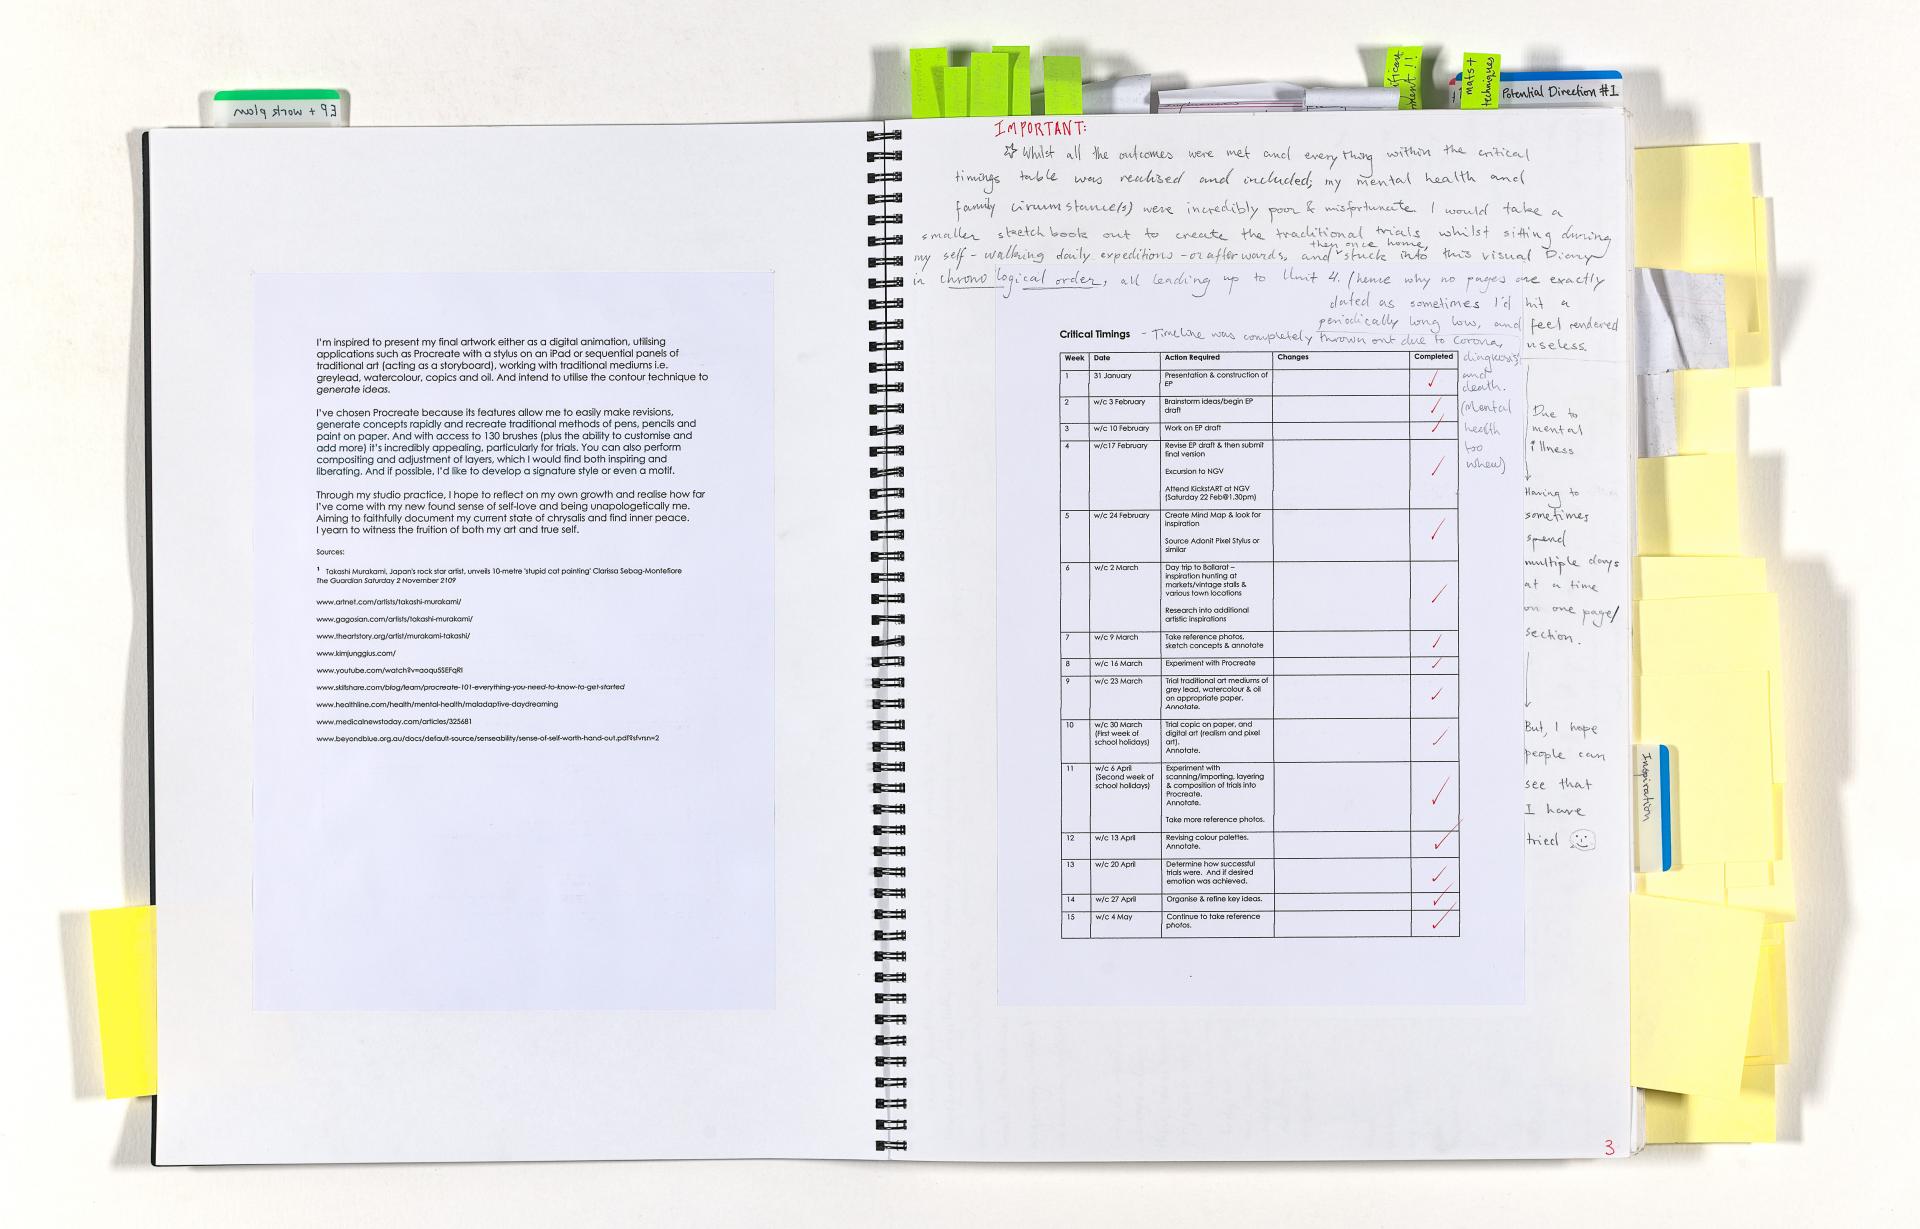 EP + work plan
I'm inspired to present my final artwork either as a digital animation, utilising
applications such as Procreate with a stylus on an iPad or sequential panels of
traditional art (acting as a storyboard), working with traditional mediums i.e.
greylead, watercolour, copics and oil. And intend to utilise the contour technique to
generate ideas.
I've chosen Procreate because its features allow me to easily make revisions,
generate concepts rapidly and recreate traditional methods of pens, pencils and
paint on paper. And with access to 130 brushes (plus the ability to customise and
add more) it's incredibly appealing, particularly for trials. You can also perform
compositing and adjustment of layers, which I would find both inspiring and
liberating. And if possible, I'd like to develop a signature style or even a motif.
Through my studio practice, I hope to reflect on my own growth and realise how far
I've come with my new found sense of self-love and being unapologetically me.
Aiming to faithfully document my current state of chrysalis and find inner peace.
I yearn to witness the fruition of both my art and true self.
Sources:
1 Takashi Murakami, Japan's rock star artist, unveils 10-metre 'stupid cat painting' Clarissa Sebag-Montefiore
The Guardian Saturday 2 November 2109
www.artnet.com/artists/takashi-murakami/
www.gagosian.com/artists/takashi-murakami/
www.theartstory.org/artist/murakami-takashi/
www.kimjunggius.com/
www.youtube.com/watch?v=aoquSSEFqRI
www.skillshare.com/blog/learn/procreate-101-everything-you-need-to-know-to-get-started
www.healthline.com/health/mental-health/maladaptive-daydreaming
www.medicalnewstoday.com/articles/325681
www.beyondblue.org.au/docs/default-source/senseability/sense-of-self-worth-hand-out.pdf?sfvrsn=2
mats +
techniques
Potential Direction #1
IMPORTANT:
☆ Whilst all the outcomes were met and everything within the critical
timings table was realised and included; my mental health and
family circumstance(s) were incredibly poor & misfortunate. I would take a
smaller sketchbook out to create the traditional trials whilst sitting during
then once home,
my self-walking daily expeditions - or afterwards, and stuck into this visual Diary
in chronological order, all leading up to Unit 4. (hence why no pages are exactly
dated as sometimes I'd hit a
periodically long low, and feel rendered
useless.
Critical Timings - Timeline was completely thrown out due to Corona,
diagnosis,
and
death.
(Mental
health
too
whew)
Week Date Action Required Changes Completed
1 31 January Presentation & construction of
EP
2 w/c 3 February Brainstorm ideas/begin EP
draft
3 w/c 10 February Work on EP draft
4 w/c17 February Revise EP draft & then submit
final version
Excursion to NGV
Attend KickstART at NGV
(Saturday 22 Feb@1.30pm)
5 w/c 24 February Create Mind Map & look for
inspiration
Source Adonit Pixel Stylus or
similar
6 w/c 2 March Day trip to Ballarat –
inspiration hunting at
markets/vintage stalls &
various town locations
Research into additional
artistic inspirations
7 w/c 9 March Take reference photos,
sketch concepts & annotate
8 w/c 16 March Experiment with Procreate
9 w/c 23 March Trial traditional art mediums of
grey lead, watercolour & oil
on appropriate paper.
Annotate.
10 w/c 30 March Trial copic on paper, and
(First week of digital art (realism and pixel
school holidays) art).
Annotate.
11 w/c 6 April Experiment with
(Second week of scanning/importing, layering
school holidays) & composition of trials into
Procreate.
Annotate.
Take more reference photos.
12 w/c 13 April Revising colour palettes.
Annotate.
13 w/c 20 April Determine how successful
trials were. And if desired
emotion was achieved.
14 w/c 27 April Organise & refine key ideas.
15 w/c 4 May Continue to take reference
photos.
Due to
mental
illness
Having to
sometimes
spend
multiple days
at a time
on one page/
section.
But, I hope
people can
see that
I have
tried
Inspiration
3